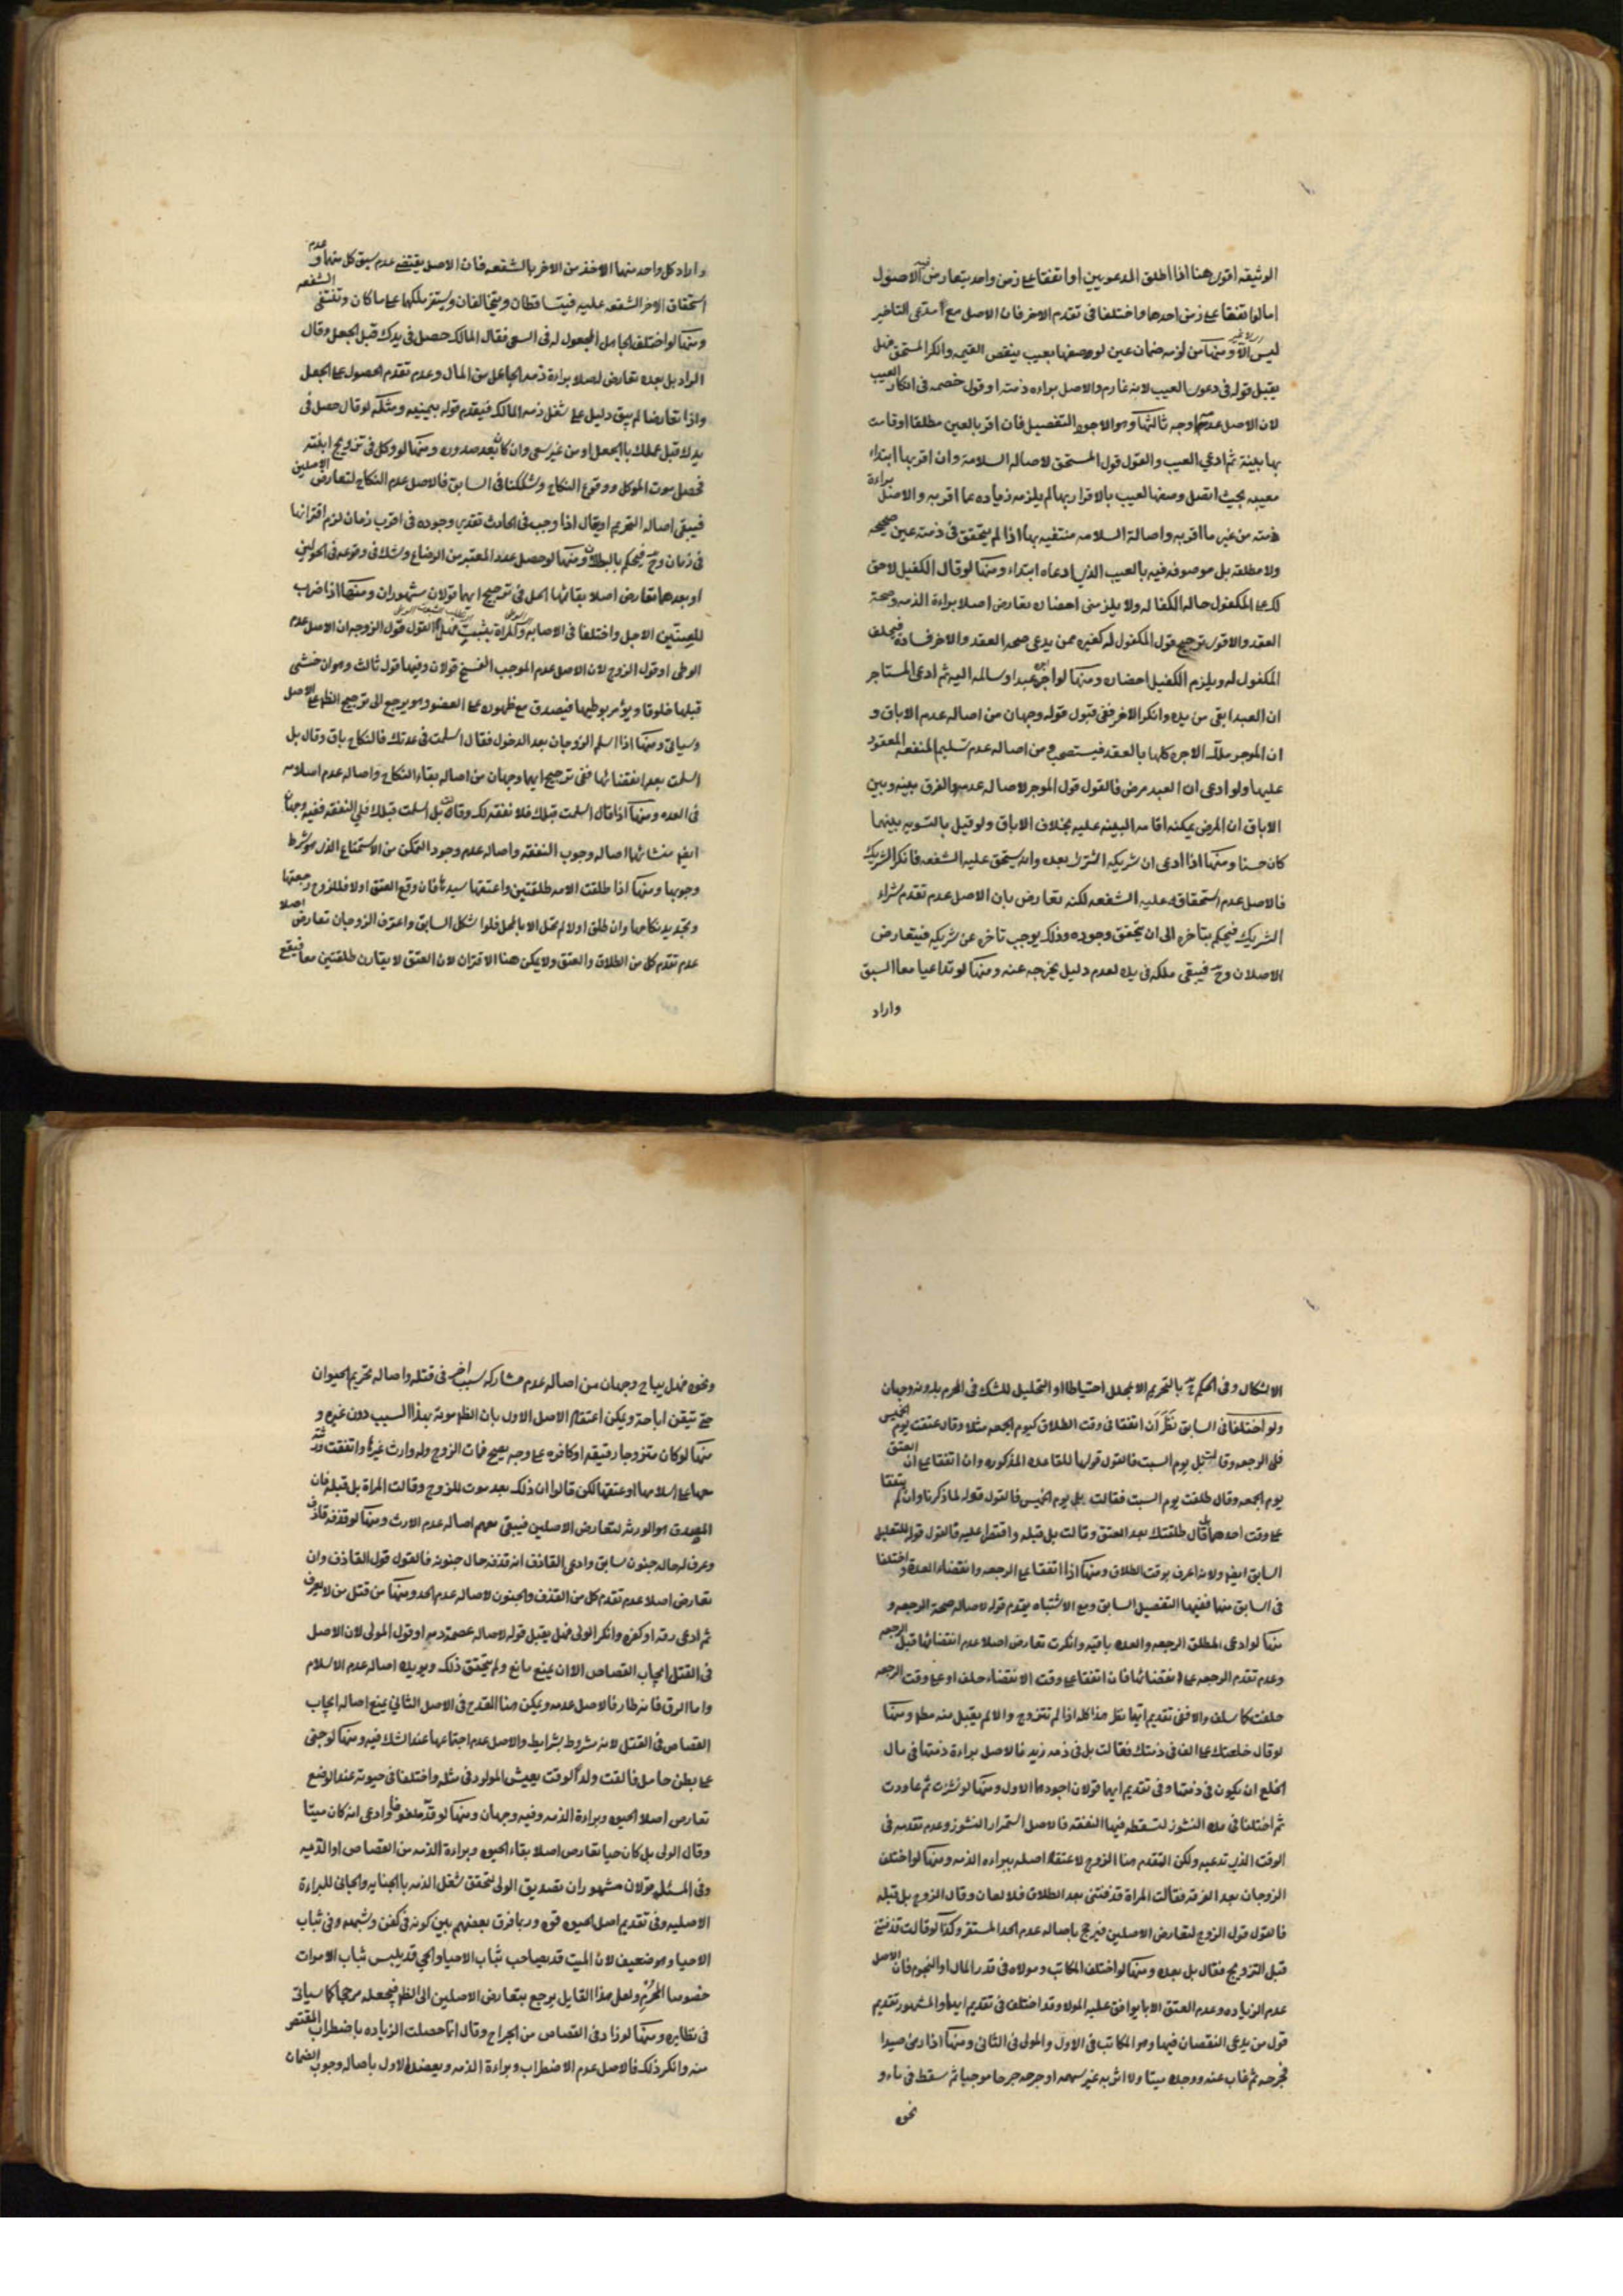 الوثيقه اقوى هنا اذا اطلق المدعويين او اتفقتا على زمن واحد يتعارض فيه الاصول
اما لو اتفقتا على زمن احدها واختلفا فى تقدم الاخر فان الاصل مع مدعى التاخير
ليس الا ومنها من لزمه ضمان عين لو وصفها بعيب ينقص القيمه وانكر المستحق فهل
يقبل قوله فى دعوى العيب لانه غارم والاصل براءه ذمته او قول خصمه فى انكار العيب
لان الاصل عدمه وجه ثالثها وهو الاجود التفصيل فان اقر بالعين مطلقا او قامت
بها بينة ثم ادعى العيب والقول قول المستحق لاصاله السلامه وان اقر بها ابتداء
معيبه بحيث اتصل وصفها العيب بالاقرار بها لم يلزمه زياده عما اقر به والاصل براءة
ذمته من غير ما اقر به واصالة السلامه منتفيه بها اذا لم يتحقق فى ذمته عين صحيحه
ولا مطلقه بل موصوفه فيه بالعيب الذى ادعاه ابتداء ومنها لو قال الكفيل لا حق
لك على المكفول حاله الكفاله ولا يلزمنى احضاره تعارض اصلا براءة الذمه وصحة
العقد والاقوى ترجيح قول المكفول له كغيره ممن يدعى صحه العقد والاخر فساده فيحلف
المكفول له ويلزم الكفيل احضاره ومنها لو اجره عبدا وسلمه اليه ثم ادعى المستاجر
ان العبد ابق من يده وانكر الاخر ففى قبول قوله وجهان من اصاله عدم الاباق و
ان الموجر ملك الاجره كلها بالعقد فيستصحب ومن اصاله عدم تسليم المنفعه المعقود
عليها ولو ادعى ان العبد مرض فالقول قول الموجر لاصاله عدمه والفرق بينه وبين
الاباق ان المرض يمكنه اقامه البينه عليه بخلاف الاباق ولو قيل بالتسويه بينهما
كان حسنا ومنها اذا ادعى ان شريكه اشترى بعده وانه يستحق عليه الشفعه فانكر الشريك
فالاصل عدم استحقاقه عليه الشفعه لكنه تعارض بان الاصل عدم تقدم شراء
الشريك فيحكم بتاخره الى ان يتحقق وجوده وذلك يوجب تاخره عن شريكه فيتعارض
الاصلان وح فيبقى ملكه فى يده لعدم دليل يخرجه عنه ومنها لو تداعيا معا السبق
واراد
واراد كل واحد منهما الاخذ من الاخر بالشفعه فان الاصل يقتضى عدم سبق كل منهما و عدم
استحقاق الاخر الشفعه عليه فيتساقطان ويتحالفان ويستقر ملكهما على ما كان وتنتفى الشفعه
ومنها لو اختلف الجاعل المجعول له فى السعى فقال المالك حصل فى يدك قبل الجعل وقال
الراد بل بعده تعارض اصلا براءة ذمه الجاعل من المال وعدم تقدم الحصول على الجعل
واذا تعارضا لم يبق دليل على شغل ذمه المالك فيقدم قوله بيمينه ومثله لو قال حصل فى
يدك قبل علمك بالجعل او من غير سعى وان كان بعد صدوره ومنها لو وكل فى تزويج ابنته
فحصل موت الموكل ووقوع النكاح وشككنا فى السابق فالاصل عدم النكاح لتعارض الاصلين
فيبقى اصاله التحريم او يقال اذا وجب فى الحادث تقدير وجوده فى اقرب زمان لزم اقترانهما
فى زمان وح فيحكم بالبطلان ومنها لو حصل عدد المعتبر من الرضاع وشك فى وقوعه فى الحولين
او بعدهما تعارض اصلا بقائهما الحل ففى ترجيح ايهما قولان مشهوران ومنها اذا ضرب
للعنين الاجل واختلفا فى الاصابه والمراة بثيب فهل القول قول الزوجه ان الاصل عدم
الوطى او قول الزوج لان الاصل عدم الموجب الفسخ قولان وفيها قول ثالث وهو ان خشى
قبلها خلوقا ويؤمر بوطيها فيصدق مع ظهوره على العضو وهو يرجع الى ترجيح الظاهر على الاصل
وسياتى ومنها اذا اسلم الزوجان بعد الدخول فقال اسلمت فى عدتك فالنكاح باق وقال بل
اسلمت بعد انقضائها ففى ترجيح ايهما وجهان من اصاله بقاء النكاح واصاله عدم اسلامه
فى العده ومنها اذا قال اسلمت قبلك فلا نفقه لك وقالت بل اسلمت قبلك فلى النفقه ففيه وجهان
ايضا منشائهما اصاله وجوب النفقه واصاله عدم وجود التمكن من الاستمتاع الذى هو شرط
وجوبها ومنها اذا طلقت الامه طلقتين واعتقها سيدها فان وقع العتق اولا فللزوج رجعتها
وتجديد نكاحها وان طلق اولا لم تحل الا بالمحل فلو اشكل السابق واعترف الزوجان تعارض اصلا
عدم تقدم كل من الطلاق والعتق ولا يمكن هنا الاقتران لان العتق لا يقارن طلقتين معا فيقع
الاشكال وفى الحكم ح بالتحريم الا بمحلل احتياطا او التحليل للشك فى المحرم بدونه وجهان
ولو اختلفا فى السابق نظر ان اتفقا فى وقت الطلاق كيوم الجمعه مثلا وقال عتقت يوم الخميس
فلى الرجعه وقالت بل يوم السبت فالقول قولها للقاعده المذكوره وان اتفقا على ان العتق
يوم الجمعه وقال طلقت يوم السبت فقالت بل يوم الخميس فالقول قوله لما ذكرنا وان لم يتفقا
على وقت احدهما بل قال طلقتك بعد العتق وقالت بل قبله واقتصرا عليه فالقول قوله للتعليل
السابق ايضا ولانه اعرف بوقت الطلاق ومنها اذا اتفقا على الرجعه وانقضاء العده واختلفا
فى السابق منهما ففيها التفصيل السابق ومع الاشتباه يقدم قوله لاصاله صحة الرجعه و
منها لو ادعى المطلق الرجعه والعده باقيه وانكرت تعارض اصلا عدم انقضائها قبل الرجعه
وعدم تقدم الرجعه على انقضائها فان اتفقا على وقت الانقضاء حلف او على وقت الرجعه
حلفت كما سلف والا ففى تقديم ايهما نظر هذا كله اذا لم تتزوج والا لم يقبل منه مطلقا ومنها
لو قال خلعتك على الف فى ذمتك فقالت بل فى ذمه زيد فالاصل براءة ذمتها فى مال
الخلع ان يكون فى ذمتها وفى تقديم ايهما قولان اجودهما الاول ومنها لو نشزت ثم عاودت
ثم اختلفا فى مدة النشوز لتسقط فيها النفقه فالاصل استمرار النشوز وعدم تقدمه فى
الوقت الذى تدعيه ولكن التقدم هنا الزوج لاعتضاد اصله ببراءه الذمه ومنها لو اختلف
الزوجان بعد الفرقه فقالت المراة قذفتنى بعد الطلاق فلا لعان وقال الزوج بل قبله
فالقول قول الزوج لتعارض الاصلين فيرجح باصاله عدم الحد المستقر وكذا لو قالت قذفتنى
قبل التزويج فقال بل بعده ومنها لو اختلف المكاتب ومولاه فى قدر المال او النجوم فان الاصل
عدم الزياده وعدم العتق الا بما يوافق عليه المولا وقد اختلف فى تقديم ايهما والمشهور تقديم
قول من يدعى النقصان فيهما وهو المكاتب فى الاول والمولى فى الثانى ومنها اذا رمى صيدا
فجرحه ثم غاب عنه ووجده ميتا ولا اثر به غير سهمه او جرحه جرحا موحيا ثم سقط فى ماء و
نحوه
ونحوه فهل يباح وجهان من اصاله عدم مشاركه سبب اخر فى قتله واصاله تحريم الحيوان
حتى تتيقن اباحته ويمكن اعتضاد الاصل الاول بان الظاهر موته بهذا السبب دون غيره و
منها لو كان متزوجا رقيقه او كافره على وجه يصح فمات الزوج وله وارث غيرها واتفقت ورثته
معها على اسلامها او عتقها لكن قالوا ان ذلك بعد موت الزوج وقالت المراة بل قبله فان
المصدق هو الورثه لتعارض الاصلين فيبقى معهم اصاله عدم الارث ومنها لو قذفه قاذف
وعرف له حاله جنون سابق وادعى القاذف انه قذفه حال جنونه فالقول قول القاذف وان
تعارض اصلا عدم تقدم كل من القذف والجنون لاصاله عدم الحد ومنها من قتل من لا يعرف
ثم ادعى رقه او كفره وانكر الولى فهل يقبل قوله لاصاله عصمة دمه او قول المولى لان الاصل
فى القتل ايجاب القصاص الا ان يمنع مانع ولم يتحقق ذلك ويويده اصاله عدم الاسلام
واما الرق فانه طار فالاصل عدمه ويمكن هنا القدح فى الاصل الثانى يمنع اصاله ايجاب
القصاص فى القتل لانه مشروط بشرايط والاصل عدم اجتماعها عند الشك فيه ومنها لو جنى
على بطن حامل فالقت ولدا لوقت يعيش المولود فى مثله واختلفا فى حيوته عند الوضع
تعارض اصلا الحيوه وبراءة الذمه وفيه وجهان ومنها لو قد ملفوفا وادعى انه كان ميتا
وقال الولى بل كان حيا تعارض اصلا بقاء الحيوه وبراءة الذمه من القصاص او الديه
وفى المسئله قولان مشهوران تصديق الولى لتحقق شغل الذمه بالجنايه والجانى للبراءة
الاصليه وفى تقديم اصل الحيوه قوه وربما فرق بعضهم بين كونه فى كفن وشبهه وفى ثياب
الاحياء وهو ضعيف لان الميت قد يصاحب ثياب الاحياء والحى قد يلبس ثياب الاموات
خصوصا المحرم ولعل هذا القايل يرجع بتعارض الاصلين الى الظاهر فيجعله مرجحا كما سياتى
فى نظايره ومنها لو زاد فى القصاص من الجراح وقال انما حصلت الزياده باضطراب المقتص
منه وانكر ذلك فالاصل عدم الاضطراب وبراءة الذمه ويعضد الاول باصاله وجوب الضمان